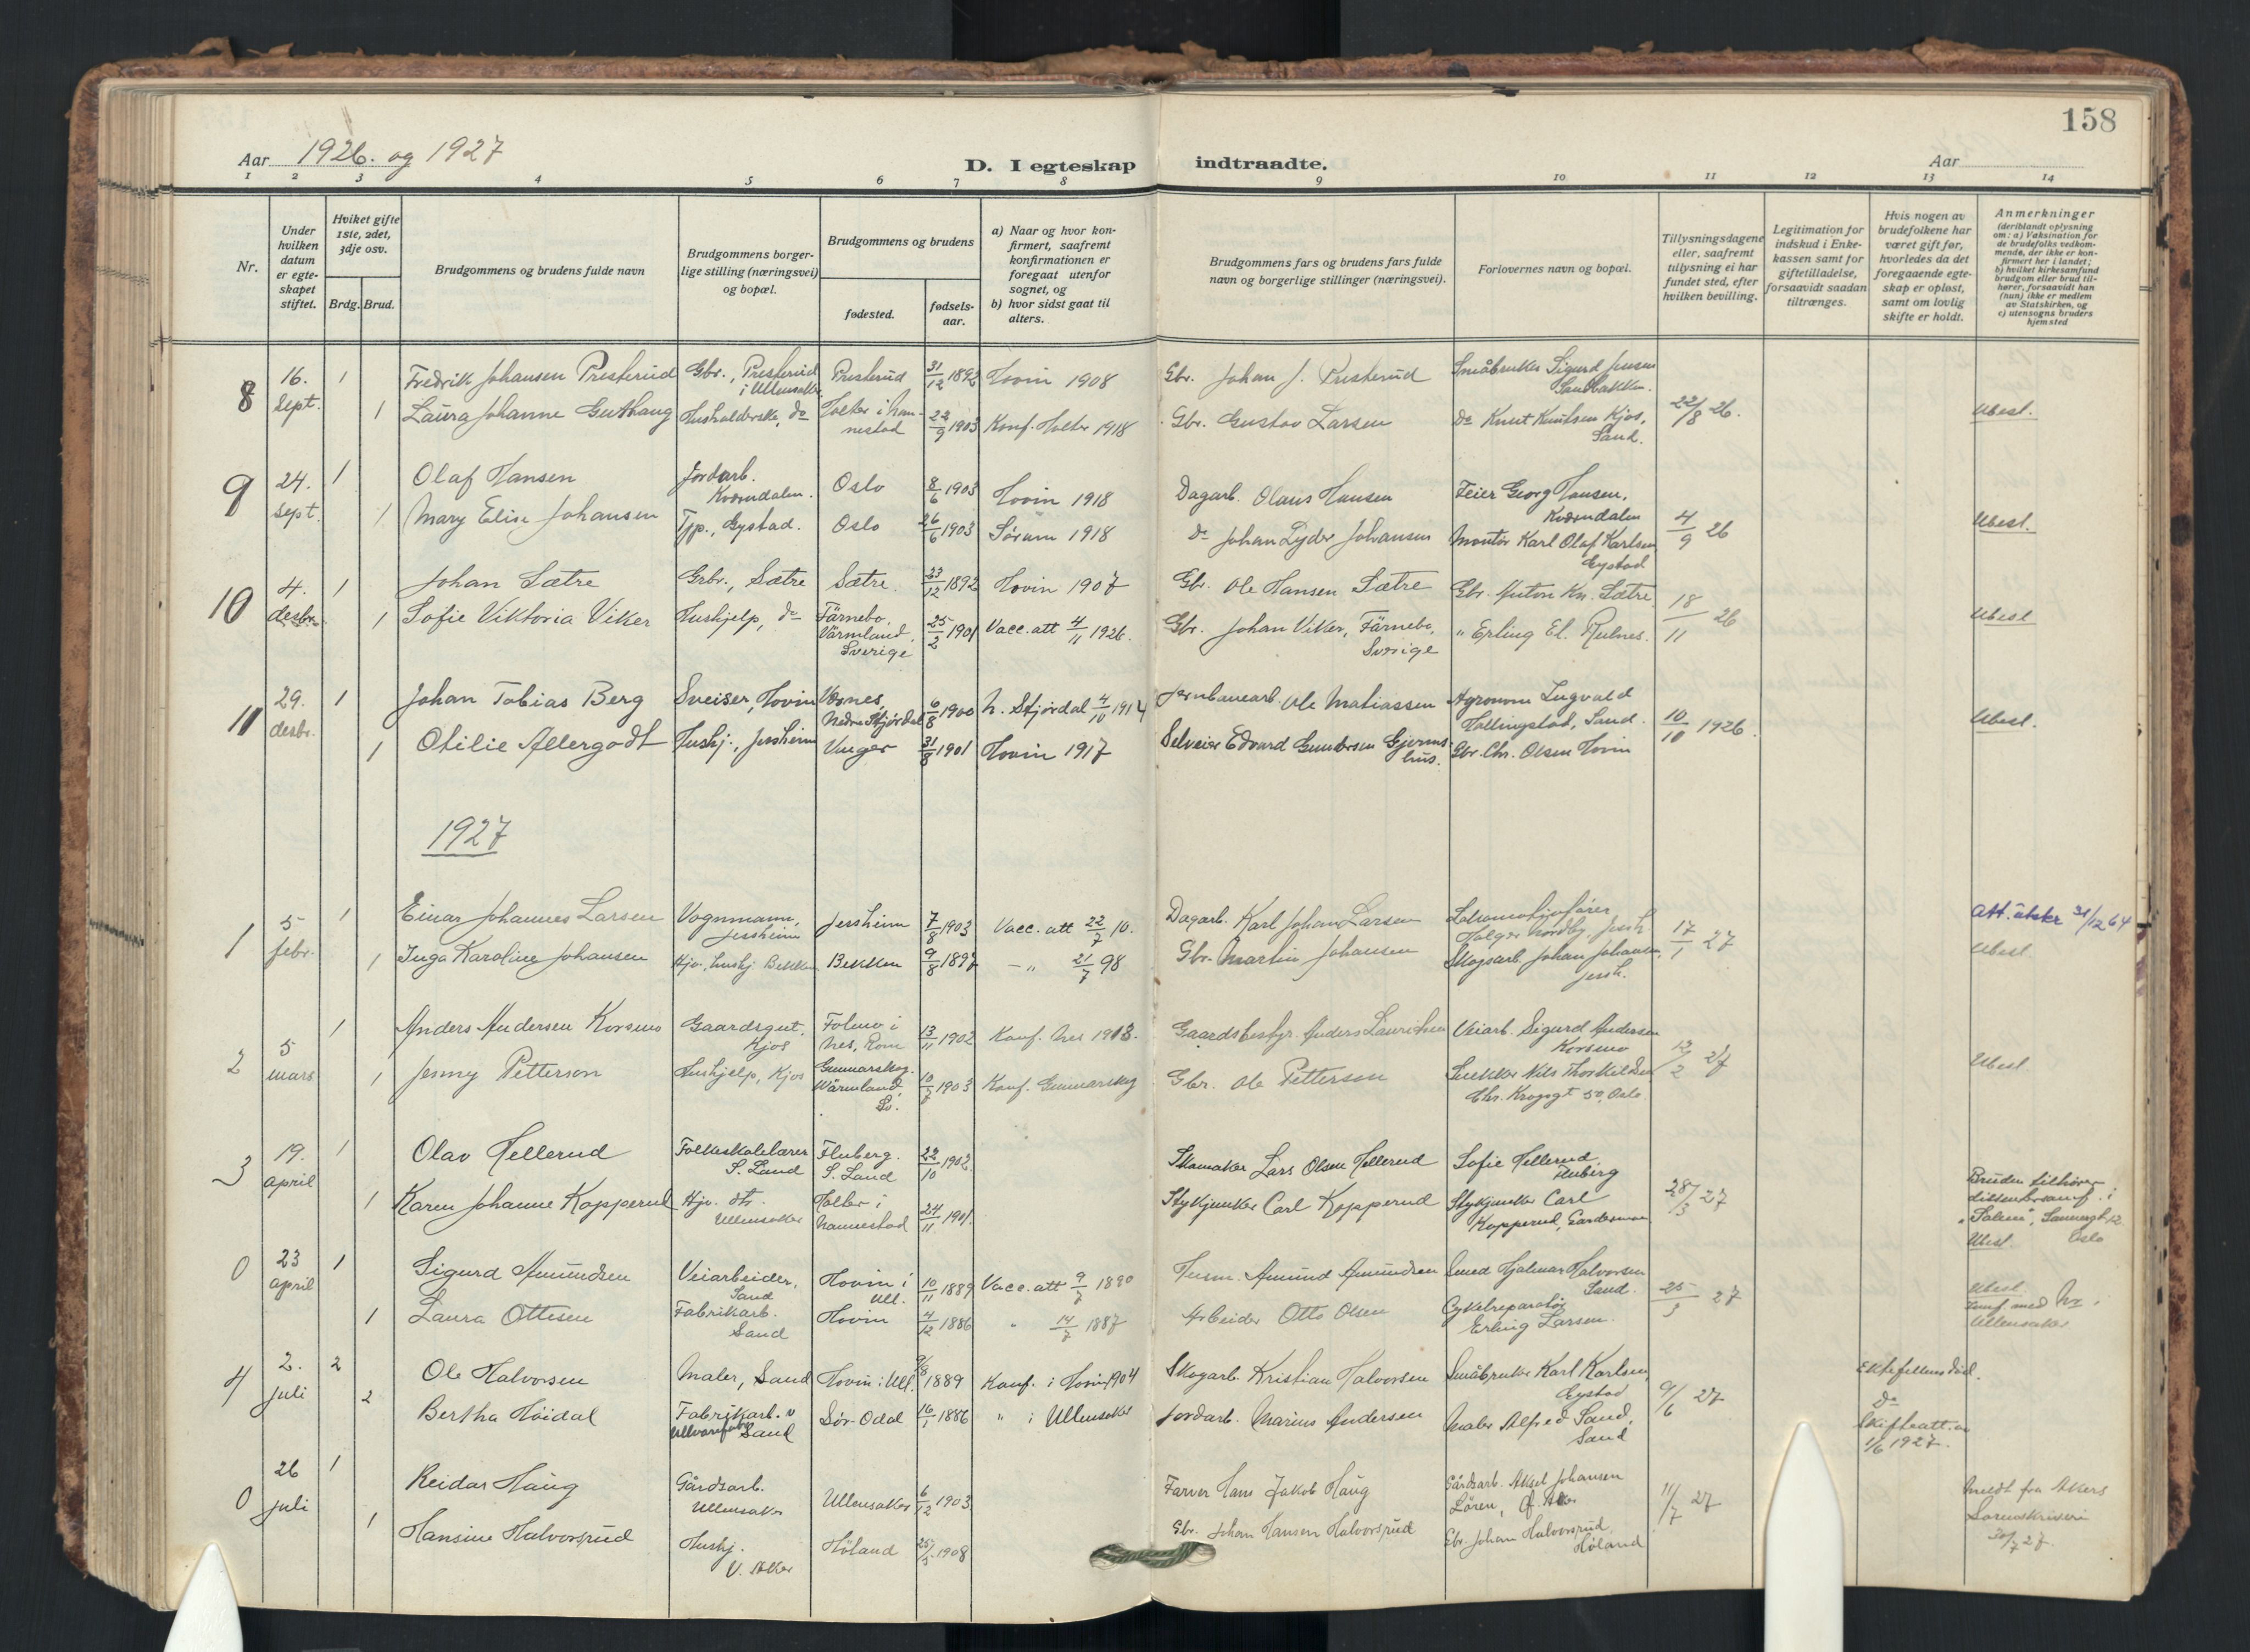 158
Aar 1926. og 1927
D. I egteskap indtraadte.
Aar
1 2 3 4 5 6 7 8 9 10 11 12 13 14
Nr.
Under hvilken datum er egte-skapet stiftet.
Hviket gifte 1ste, 2det, 3dje osv.
Brdg. Brud.
Brudgommens og brudens fulde navn
Brudgommens borger-lige stilling (næringsvei) og bopæl.
Brudgommens og brudens
fødested.
fødsels-aar.
a) Naar og hvor kon-firmert, saafremt konfirmationen er foregaat utenfor sognet, og
b) hvor sidst gaat til alters.
Brudgommens fars og brudens fars fulde navn og borgerlige stillinger (næringsvei).
Forlovernes navn og bopæl.
Tillysningsdagene eller, saafremt tillysning ei har fundet sted, efter hvilken bevilling.
Legitimation for indskud i Enke-kassen samt for giftetilladelse, forsaavidt saadan tiltrænges.
Hvis nogen av brudefolkene har været gift før, hvorledes da det foregaaende egte-skap er opløst, samt om lovlig skifte er holdt.
Anmerkninger (deriblandt oplysning om: a) Vaksination for de brudefolks vedkom-mende, der ikke er kon-firmert her i landet; b) hvilket kirkesamfund brudgom eller brud til-hører, forsaavidt han (hun) ikke er medlem av Statskirken, og c) utensogns bruders hjemsted
8 16. Sept. 1 Fredrik Johansen Presterud Gbr., Presterud i Ullensaker Presterud 31/12 1892 Hovin 1908 Gbr. Johan J. Presterud Småbruker Sigurd Jensen Sandbakken.
1 Laura Johanne Guthaug Husholderske, do Holter i Nannestad 22/9 1903 Konf. Holter 1918 Gbr. Gustav Larsen Do Knut Knutsen Kjos, Sand. 22/8 26. Ubesl.
9 24. Sept. 1 Olaf Hansen Jordarb. Kverndalen. Oslo 8/6 1903 Hovin 1918 Dagarb. Olaus Hansen Feier Georg Hansen, Kverndalen
1 Mary Elise Johansen Tjp., Gystad. Oslo 26/6 1903 Sørum 1918 Do Johan Lyder Johansen Montør Karl Olaf Karlsen Gystad 4/9 26 Ubesl.
10 4. desbr. 1 Johan Sætre Grbr., Sætre Sætre 23/12 1892 Hovin 1907 Gbr. Ole Hansen Sætre Gbr. Anton Kr. Sætre
1 Sofie Viktoria Viker Hushjelp, do Färnebo, Värmland, Sverige 25/2 1901 Vacc. att 4/11 1926. Gbr. Johan Viker, Färnebo, Sverige " Erling El. Rulnes. 18/11 26 Ubesl
11 29. desbr. 1 Johan Tobias Berg Sveiser, Hovin Værnes, Nedre Stjørdal 6/8 1900 N. Stjørdal 4/10 1914 Jernbanearb. Ole Matiassen Agronom Ingvald Hallingstad, Sand.
1 Otilie Allergodt Hushj., Jessheim Vinger 31/8 1901 Hovin 1917 Selveier Edvard Gundersen Gjermshus. Gbr. Chr. Olsen Hovin 10/10 1926. Ubesl.
1927
1 5 febr. 1 Einar Johannes Larsen Vognmann, Jessheim Jessheim 7/8 1903 Vacc. att 22/7 10. Dagarb. Karl Johan Larsen Lokomotivfører Holger Nordby, Jessh 17/1 27 Att. utskr 31/12 64
1 Inga Karoline Johansen Hjv. hushj Bekken Bekken 9/8 1897 — " 21/7 98 Gbr. Martin Johansen Skogsarb. Johan Johansen Jessh. Ubesl.
2 5 mars 1 Anders Andersen Korsmo Gaardsgut. Kjos Folmo i Nes, Rom 13/11 1902 Konf. Nes 1918. Gaardsbestyr. Anders Lauridsen Veiarb. Sigurd Andersen Korsmo
1 Jenny Petterson Hushjelp, Kjos Gunnarskog. Wärmland Sv. 10/7 1903 Konf. Gunnarskog Gbr. Ole Petterson Snekker Nils Thorkildsen Chr. Kroggt 50, Oslo 12/2 27 Ubesl
3 19. april 1 Olav Hellerud Folkeskolelærer S. Land Fluberg. S. Land 22/10 1902 Skomaker Lars Olsen Hellerud Sofie Hellerud Fluberg
1 Karen Johanne Kopperud Hjv. dtr. Ullensaker Holter i Nannestad 24/11 1901. Stykjunker Carl Kopperud Stykjunker Carl Kopperud, Gardermoen 28/3 27 Bruden tilhører dissentersamf. i "Salem", 12 Oslo Ubesl.
0 23 april 1 Sigurd Amundsen Veiarbeider, Sand Hovin i Ull. 10/11 1889 Vacc. att 9/7 1890 Husm. Amund Amundsen Smed Hjalmar Halvorsen Sand.
1 Laura Ottesen Fabrikarb. Sand Hovin 4/12 1886 " 14/7 1887 Arbeider Otto Olsen Cykelreparatør Erling Larsen. 25/3 27 Ubesl. med Ullensaker
4 2. juli 2 Ole Halvorsen Maler, Sand Hovin i Ull. 9/8 1889 Konf. i Hovin 1904 Skogarb. Kristian Halvorsen Småbruker Karl Karlsen, Gystad Ektefellens død.
2 Bertha Høidal Fabrikarb. v Ullvarefabr. Sand Sør-Odal 16/1 1886 " i Ullensaker Jordarb. Marius Andersen Maler Alfred Sand, Sand 9/6 27 Do Skifteatt. av 1/6 1927.
0 26 juli 1 Reidar Haug Gårdsarb. Ullensaker Ullensaker 6/12 1903 Farver Hans Jakob Haug Gårdsarb. Aksel Johansen Løren, Ø. Aker
1 Hansine Halvorsrud Hushj. V. Aker Høland 25/5 1908 Gbr. Johan Hansen Halvorsrud Gbr Johan Halvorsrud. Høland 11/7 27 meldt fra Akers Sorenskriveri 30/7 27.